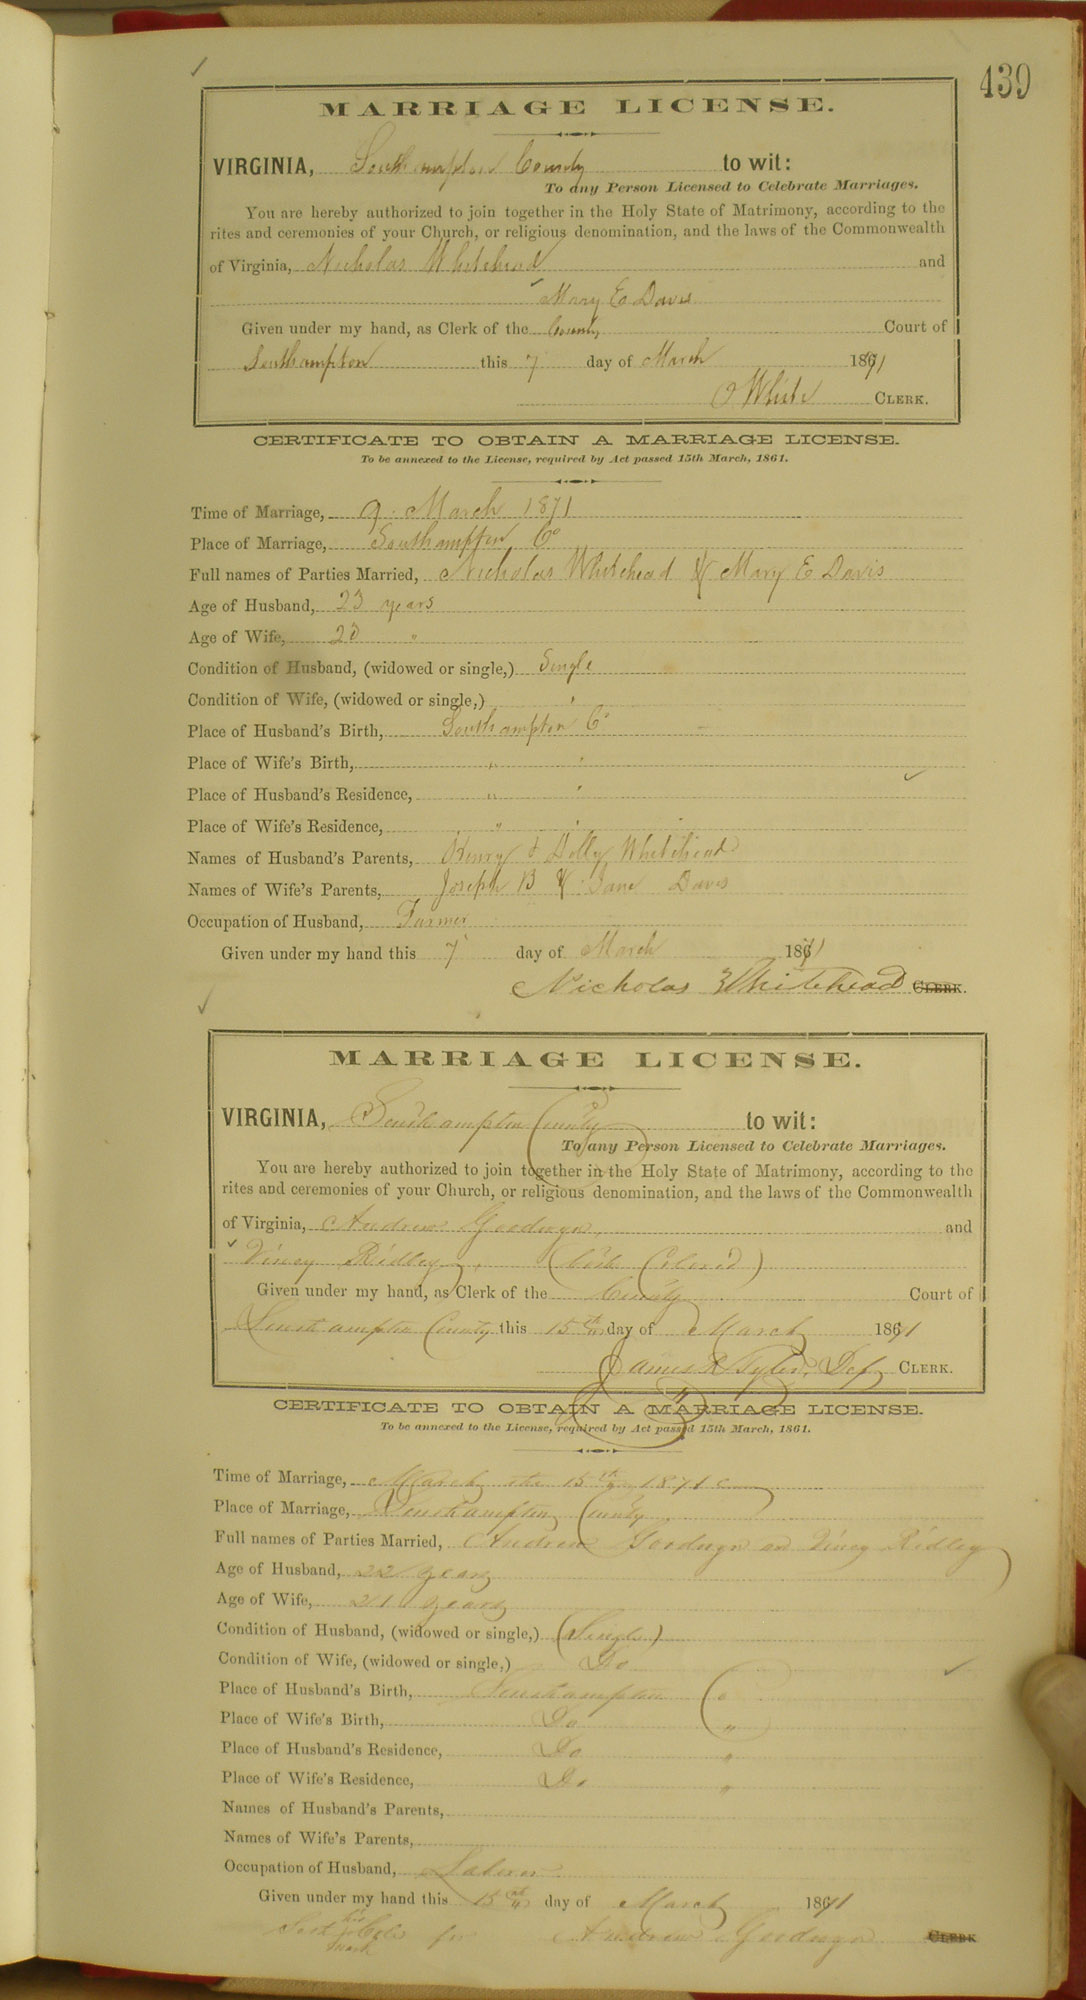 439
MARRIAGE LICENSE.
VIRGINIA, Southampton County to wit:
To any Person Licensed to Celebrate Marriages.
You are hereby authorized to join together in the Holy State of Matrimony, according to the
rites and ceremonies of your Church, or religious denomination, and the laws of the Commonwealth
of Virginia, Nicholas Whitehead and
Mary E Davis
Given under my hand, as Clerk of the County Court of
Southampton this 7 day of March 1871
White CLERK.
CERTIFICATE TO OBTAIN A MARRIAGE LICENSE.
To be annexed to the License, required by Act passed 15th March, 1861.
Time of Marriage, 9 March 1871
Place of Marriage, Southampton Co
Full names of Parties Married, Nicholas Whitehead & Mary E Davis
Age of Husband, 23 years
Age of Wife, "
Condition of Husband, (widowed or single,) Single
Condition of Wife, (widowed or single,) "
Place of Husband's Birth, Southampton Co
Place of Wife's Birth, " "
Place of Husband's Residence, " "
Place of Wife's Residence, " "
Names of Husband's Parents, Henry & Dolly Whitehead
Names of Wife's Parents, Joseph B & Jane Davis
Occupation of Husband, Farmer
Given under my hand this 7 day of March 1871
Nicholas Whitehead CLERK.
MARRIAGE LICENSE.
VIRGINIA, Southampton County to wit:
To any Person Licensed to Celebrate Marriages.
You are hereby authorized to join together in the Holy State of Matrimony, according to the
rites and ceremonies of your Church, or religious denomination, and the laws of the Commonwealth
of Virginia, Andrew Goodwyn, and
Viney Ridley, (both Colored)
Given under my hand, as Clerk of the County Court of
Southampton County this 15th day of March 1871
James R Tyler, Dep CLERK.
CERTIFICATE TO OBTAIN A MARRIAGE LICENSE.
To be annexed to the License, required by Act passed 15th March, 1861.
Time of Marriage, March the 15th 1871
Place of Marriage, Southampton County
Full names of Parties Married, Andrew Goodwyn and Viney Ridley
Age of Husband, 22 years
Age of Wife, 21 years
Condition of Husband, (widowed or single,) (Single)
Condition of Wife, (widowed or single,) Do
Place of Husband's Birth, Southampton Co
Place of Wife's Birth, Do "
Place of Husband's Residence, Do "
Place of Wife's Residence, Do "
Names of Husband's Parents,
Names of Wife's Parents,
Occupation of Husband, Laborer
Given under my hand this 15th day of March 1871
his
mark for Andrew Goodwyn CLERK